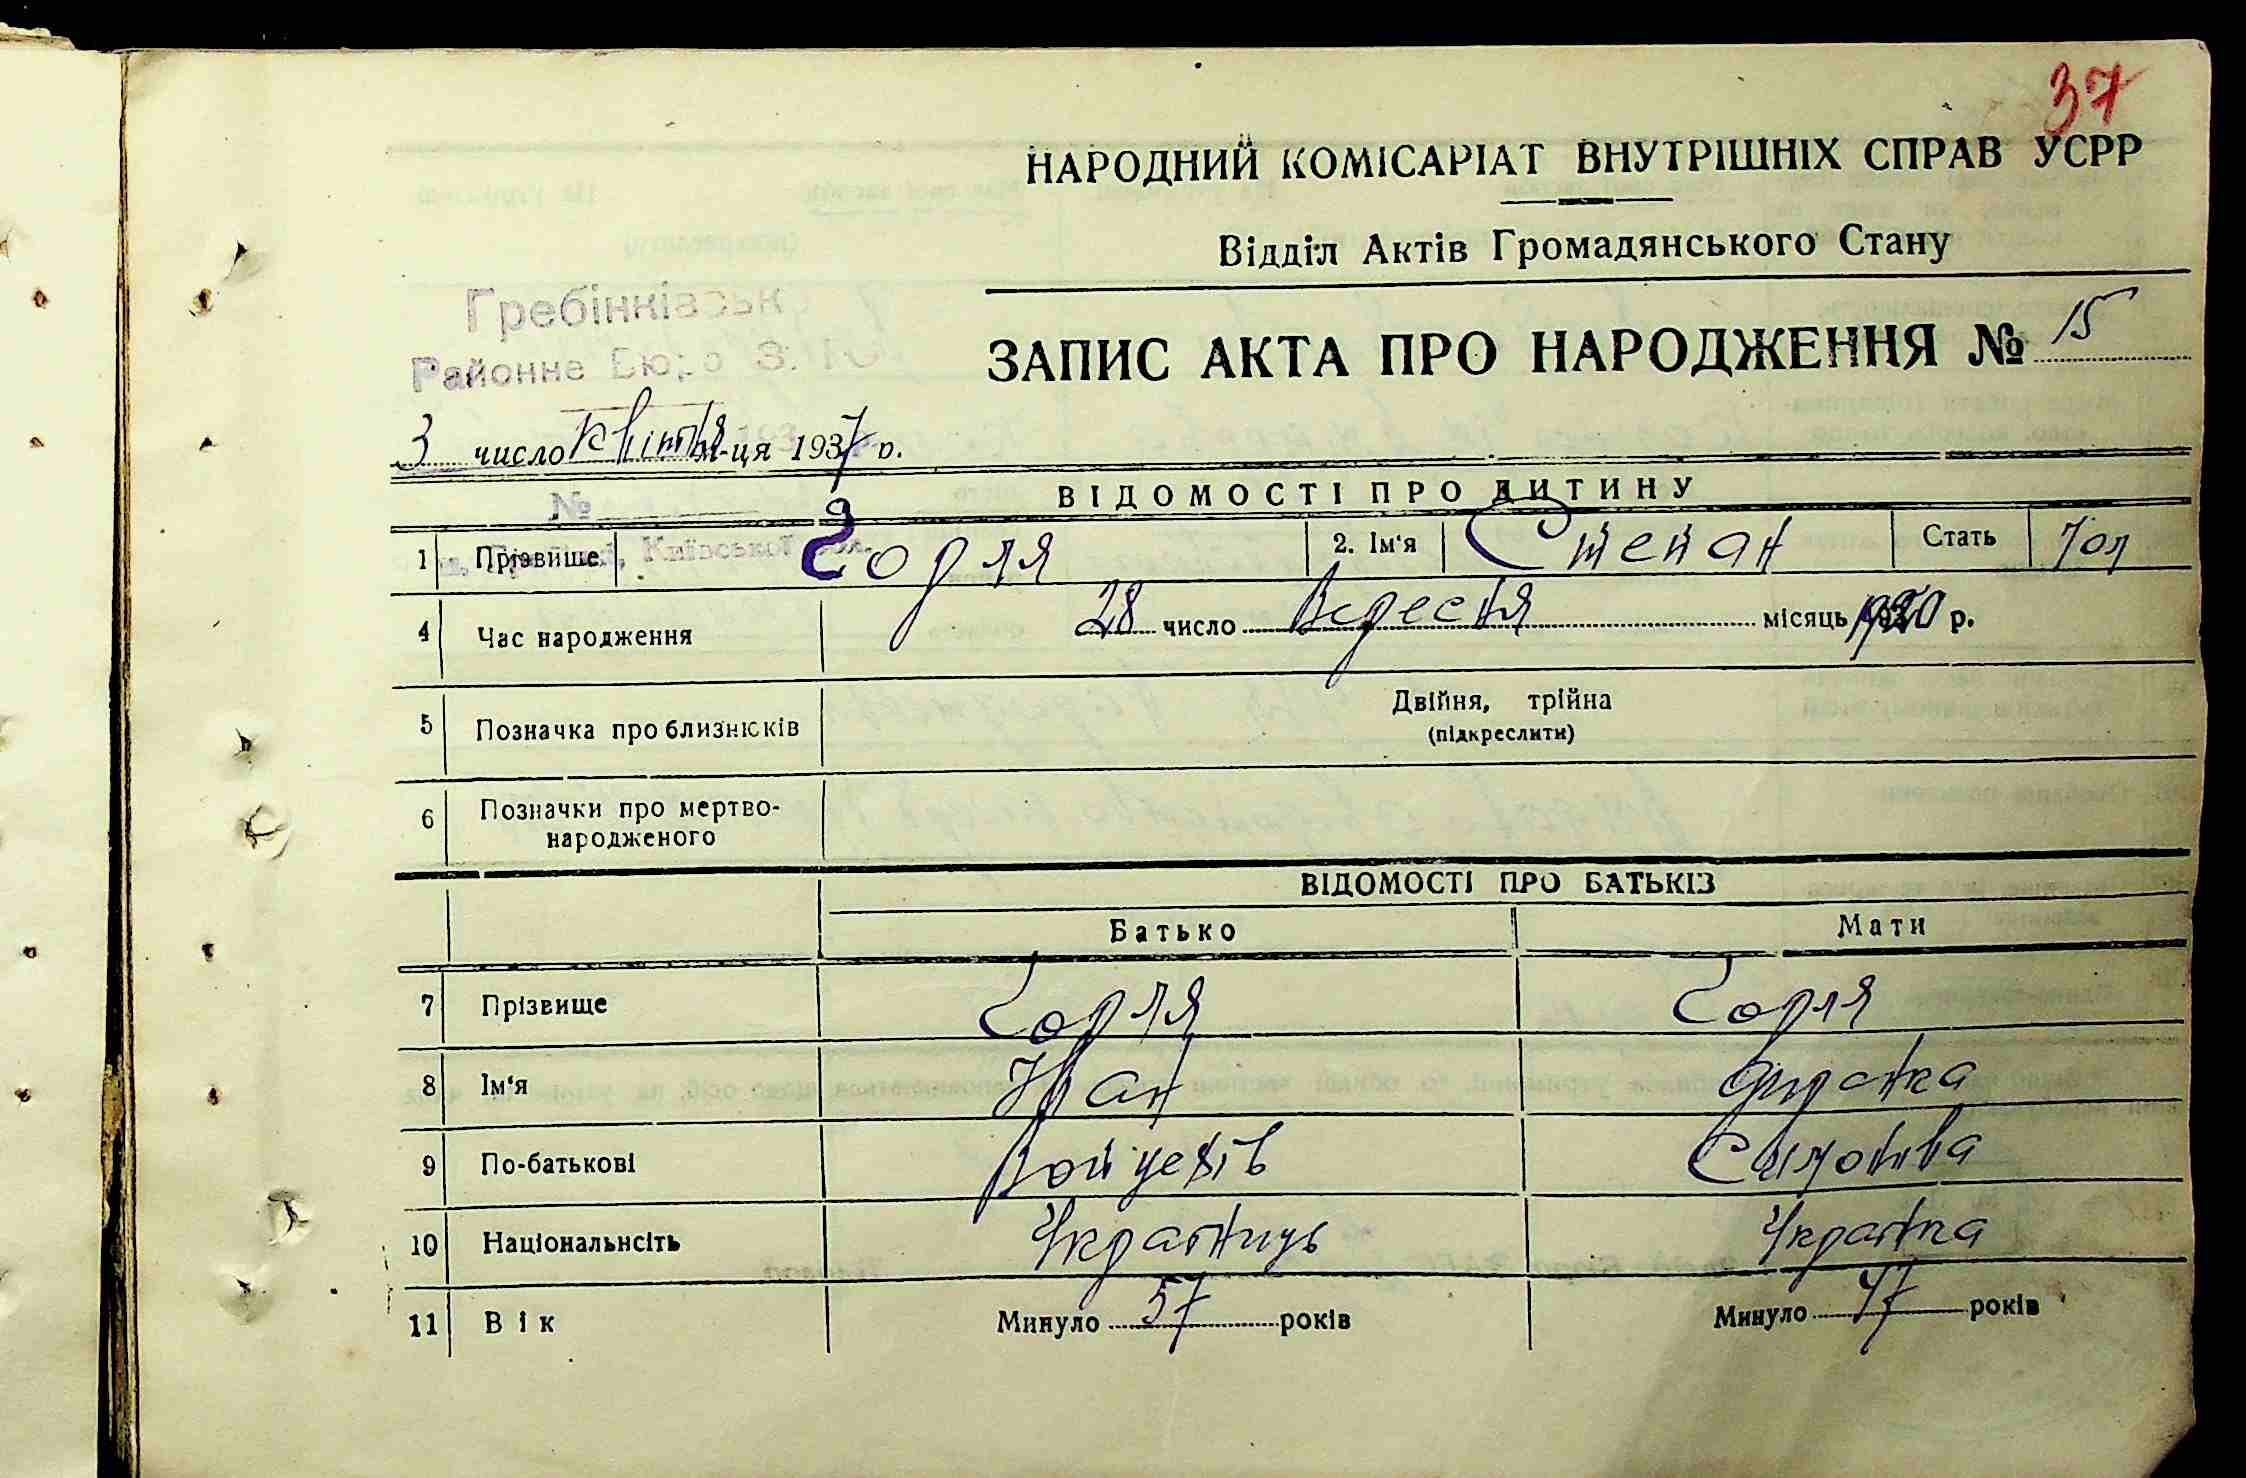 37
НАРОДНИЙ КОМІСАРІАТ ВНУТРІШНІХ СПРАВ УСРР
Відділ Актів Громадянського Стану
Гребінківськ
Районне Бюро З.
ЗАПИС АКТА ПРО НАРОДЖЕННЯ № 15
3 число Квітня м-ця 1937 р.
№
ВІДОМОСТІ ПРО ДИТИНУ
1 Прізвище 2. Ім'я Степан Стать Чол
Київської обл.
4 Час народження 28 число Вересня місяць 1920 р.
5 Позначка про близнюків Двійня, трійна
(підкреслити)
6 Позначки про мертво-
народженого
ВІДОМОСТІ ПРО БАТЬКІВ
Батько Мати
7 Прізвище
8 Ім'я Іван
9 По-батькові
10 Національнсіть Українець Українка
11 Вік Минуло 57 років Минуло 47 років